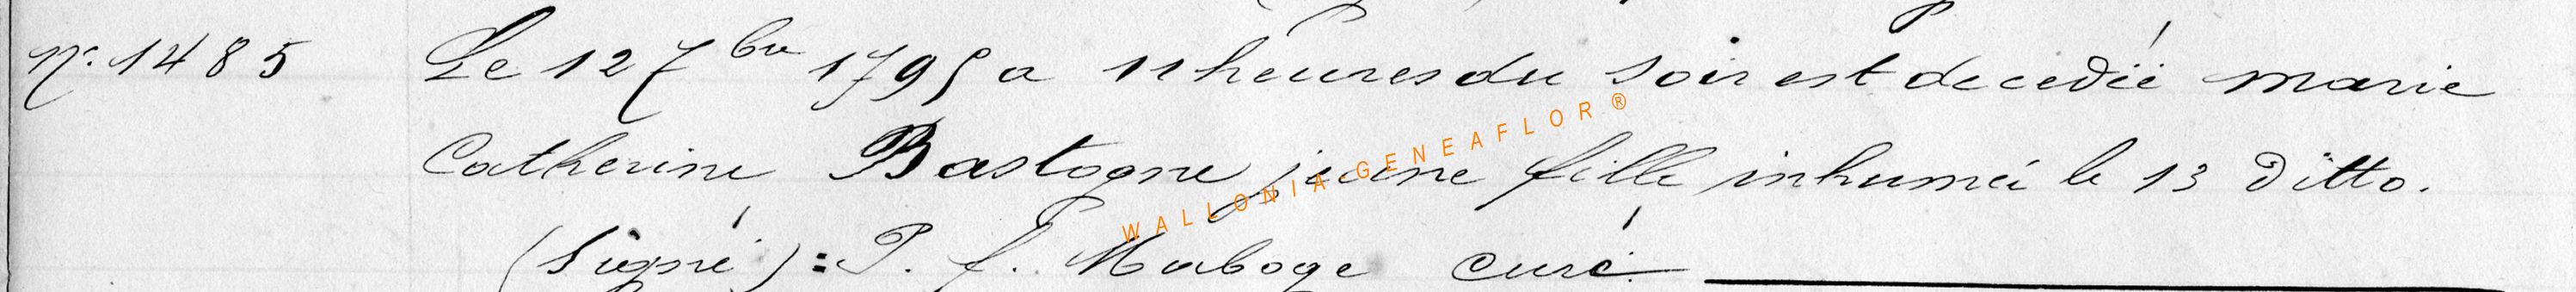 N° 1485 Le 12 7bre 1795 a 11 heures du soir est decedéé marie
Catherine Bastogne jeune fille inhumée le 13 ditto.
(Signé) : P. f. Maboge curé.
WALLONIA-GENEAFLOR®